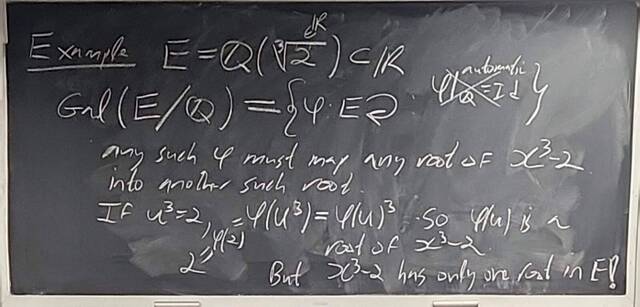 Example E = Q(∛2) ⊂ ℝ
∈ℝ
Gal(E/Q) = {φ: E↺ φ|Q = Id}
automatic
any such φ must map any root of x³-2
into another such root.
If u³=2, 2 = φ(2) = φ(u³) = φ(u)³. So φ(u) is a
root of x³-2.
But x³-2 has only one root in E!